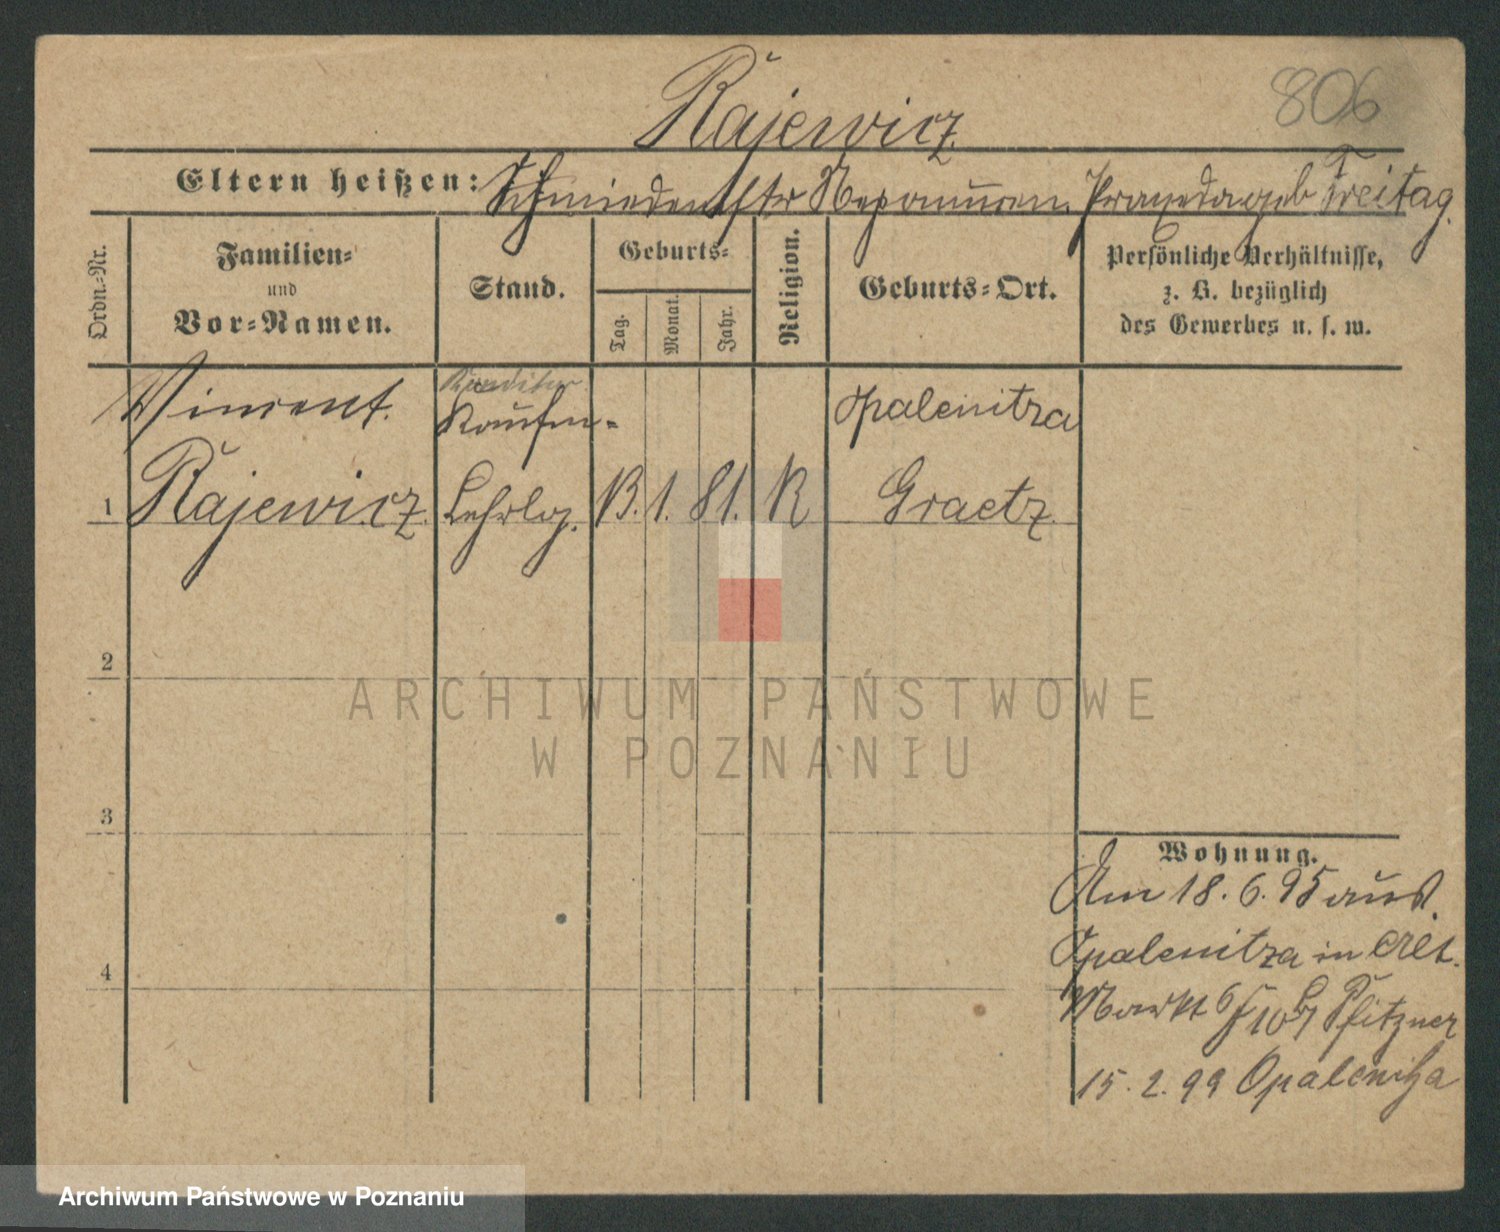 806
Rajewicz
Eltern heißen: Nepomucen. Praxeda geb Freitag.
Ordn.-Nr.
Familien-
und
Vor-Namen.
Stand.
Geburts-
Tag.
Monat.
Jahr.
Religion.
Geburts-Ort.
Persönliche Verhältnisse,
z. B. bezüglich
des Gewerbes u. s. w.
Vincent. Konditor Opalenitza
Kaufm-
1 Rajewicz. Lehrlg. 13. 1. 81. K Graetz.
2
3
4
Wohnung.
Am 18. 6. 95 aus
Opalenitza in Alt.
Markt 6/10 b/ Pfitzner
15. 2. 99 Opalenitza
ARCHIWUM PAŃSTWOWE
W POZNANIU
Archiwum Państwowe w Poznaniu